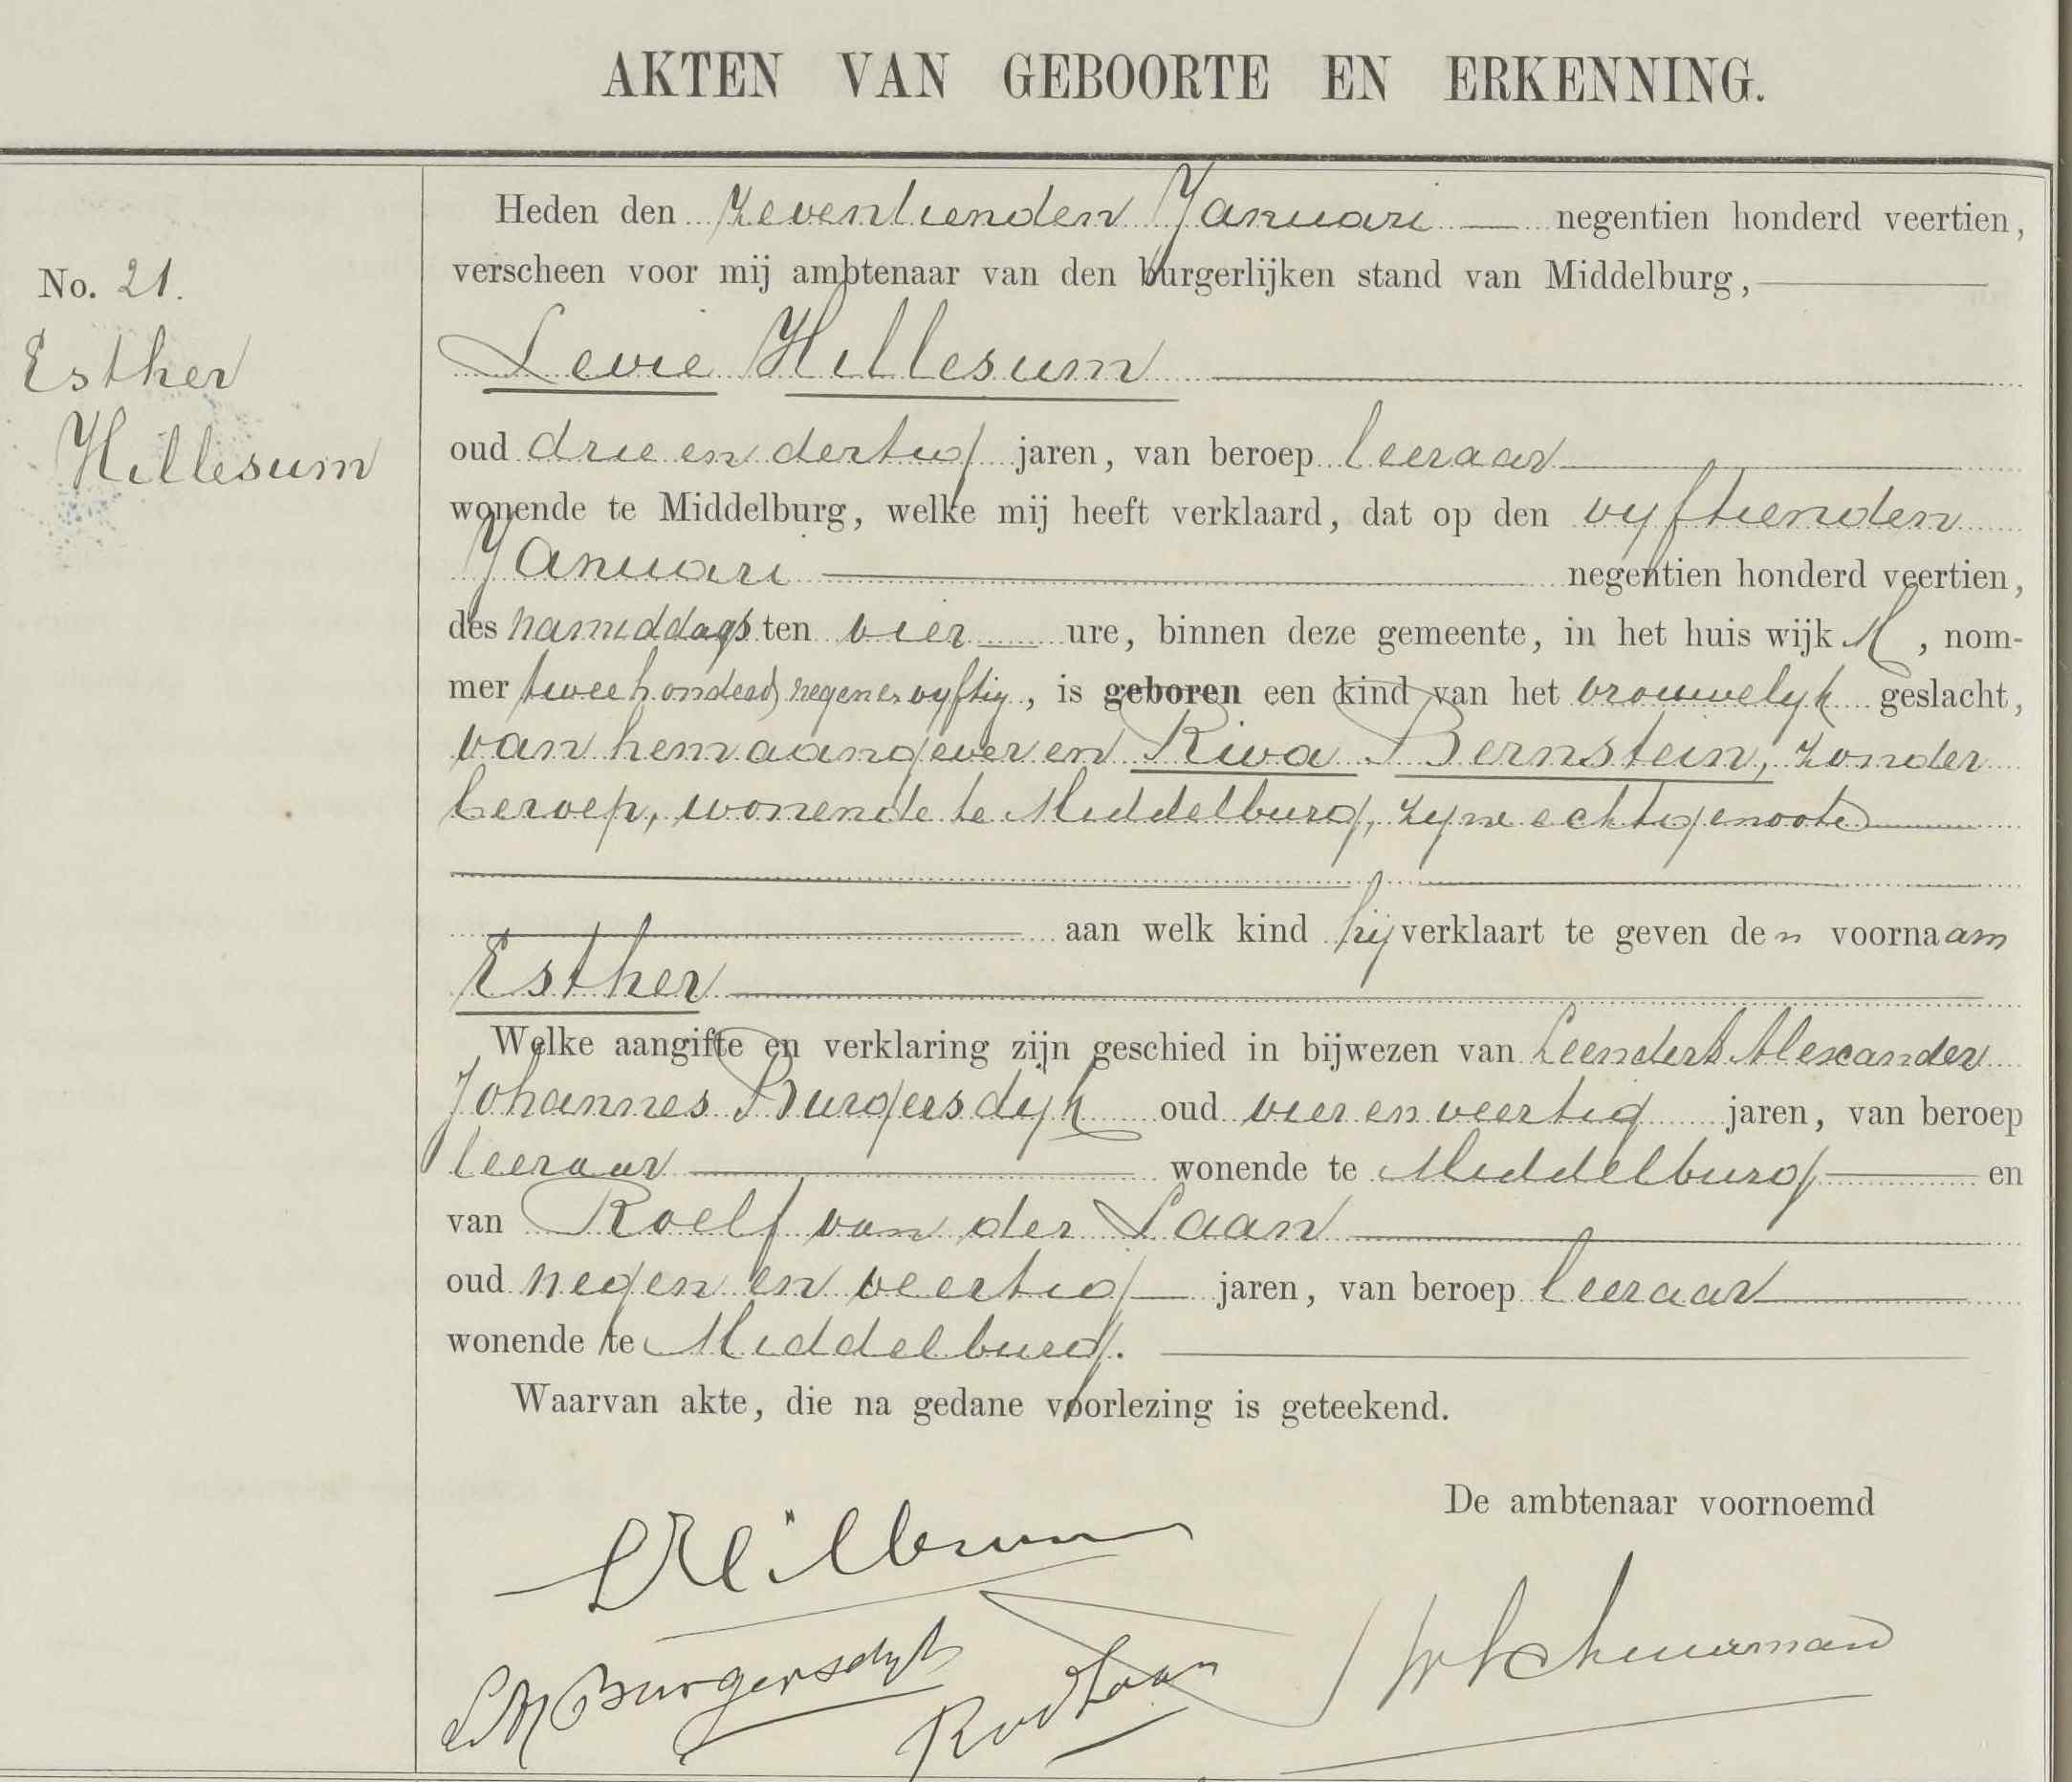 AKTEN VAN GEBOORTE EN ERKENNING.
No. 21.
Esther
Hillesum
Heden den zeventienden Januari negentien honderd veertien,
verscheen voor mij ambtenaar van den burgerlijken stand van Middelburg,
Levie Hillesum
oud drie en dertig jaren, van beroep leeraar
wonende te Middelburg, welke mij heeft verklaard, dat op den vyftienden
Januari negentien honderd veertien,
des namiddags ten vier ure, binnen deze gemeente, in het huis wijk M, nom-
mer twee honderd negen en vyftig, is geboren een kind van het vrouwelyk geslacht,
van hem aangever en Riva Bernstein, zonder
beroep, wonende te Middelburg, zyne echtgenoote
aan welk kind hij verklaart te geven den voornaam
Esther
Welke aangifte en verklaring zijn geschied in bijwezen van Leendert Alexander
Johannes Burgersdyk oud vier en veertig jaren, van beroep
leeraar wonende te Middelburg en
van Roelf van der Laan
oud negen en veertig jaren, van beroep leeraar
wonende te Middelburg.
Waarvan akte, die na gedane voorlezing is geteekend.
De ambtenaar voornoemd
LHillesum
Burgersdyk
RvdLaan